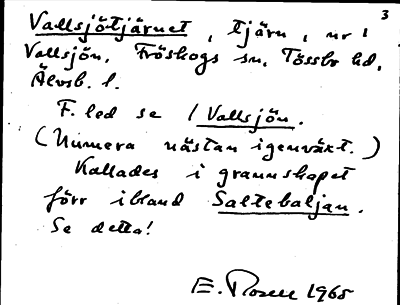 3
Vallsjötjärnet, tjärn, nr 1
Vallsjön, Fröskogs sn, Tössbo hd,
Älvsb. l.
F. led se / Vallsjön.
(Numera nästan igenväxt.)
Kallades i grannskapet
förr ibland Saltebaljan.
Se detta!
E. Rosell 1965